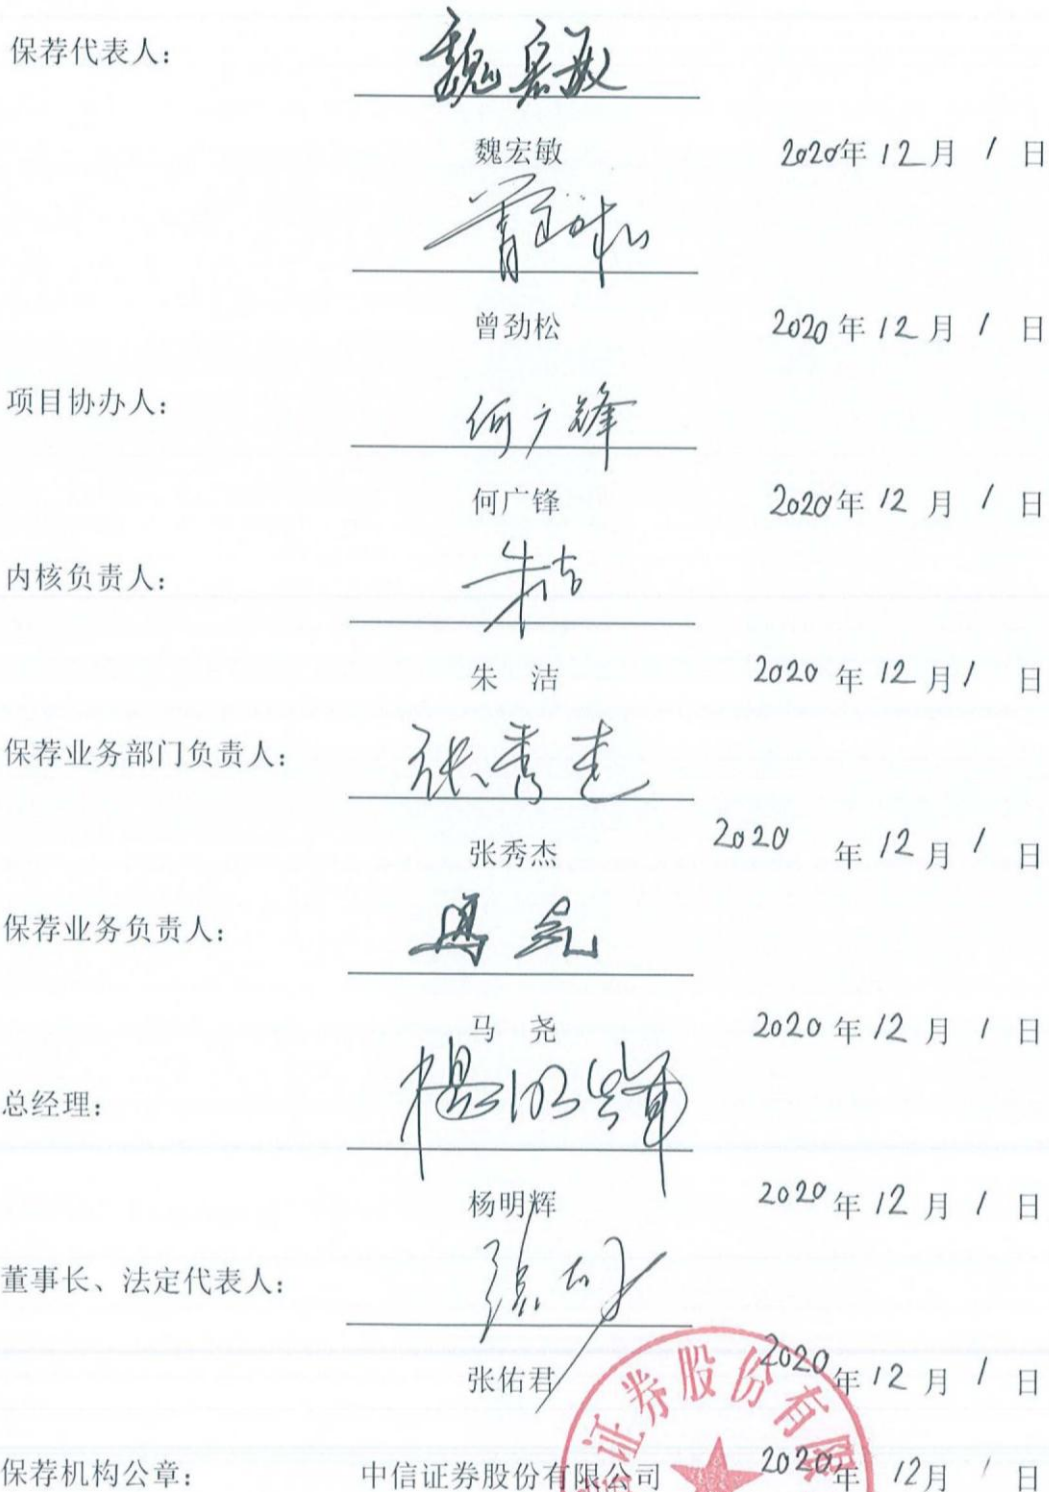 保荐代表人：
魏宏敏
魏宏敏 2020年12月1日
曾劲松
曾劲松 2020年12月1日
项目协办人：
何广锋
何广锋 2020年12月1日
内核负责人：
朱洁
朱 洁 2020年12月1日
保荐业务部门负责人：
张秀杰
张秀杰 2020年12月1日
保荐业务负责人：
马尧
马 尧 2020年12月1日
总经理：
杨明辉
杨明辉 2020年12月1日
董事长、法定代表人：
张佑君
张佑君 2020年12月1日
证券股份有限
保荐机构公章： 中信证券股份有限公司 2020年12月1日